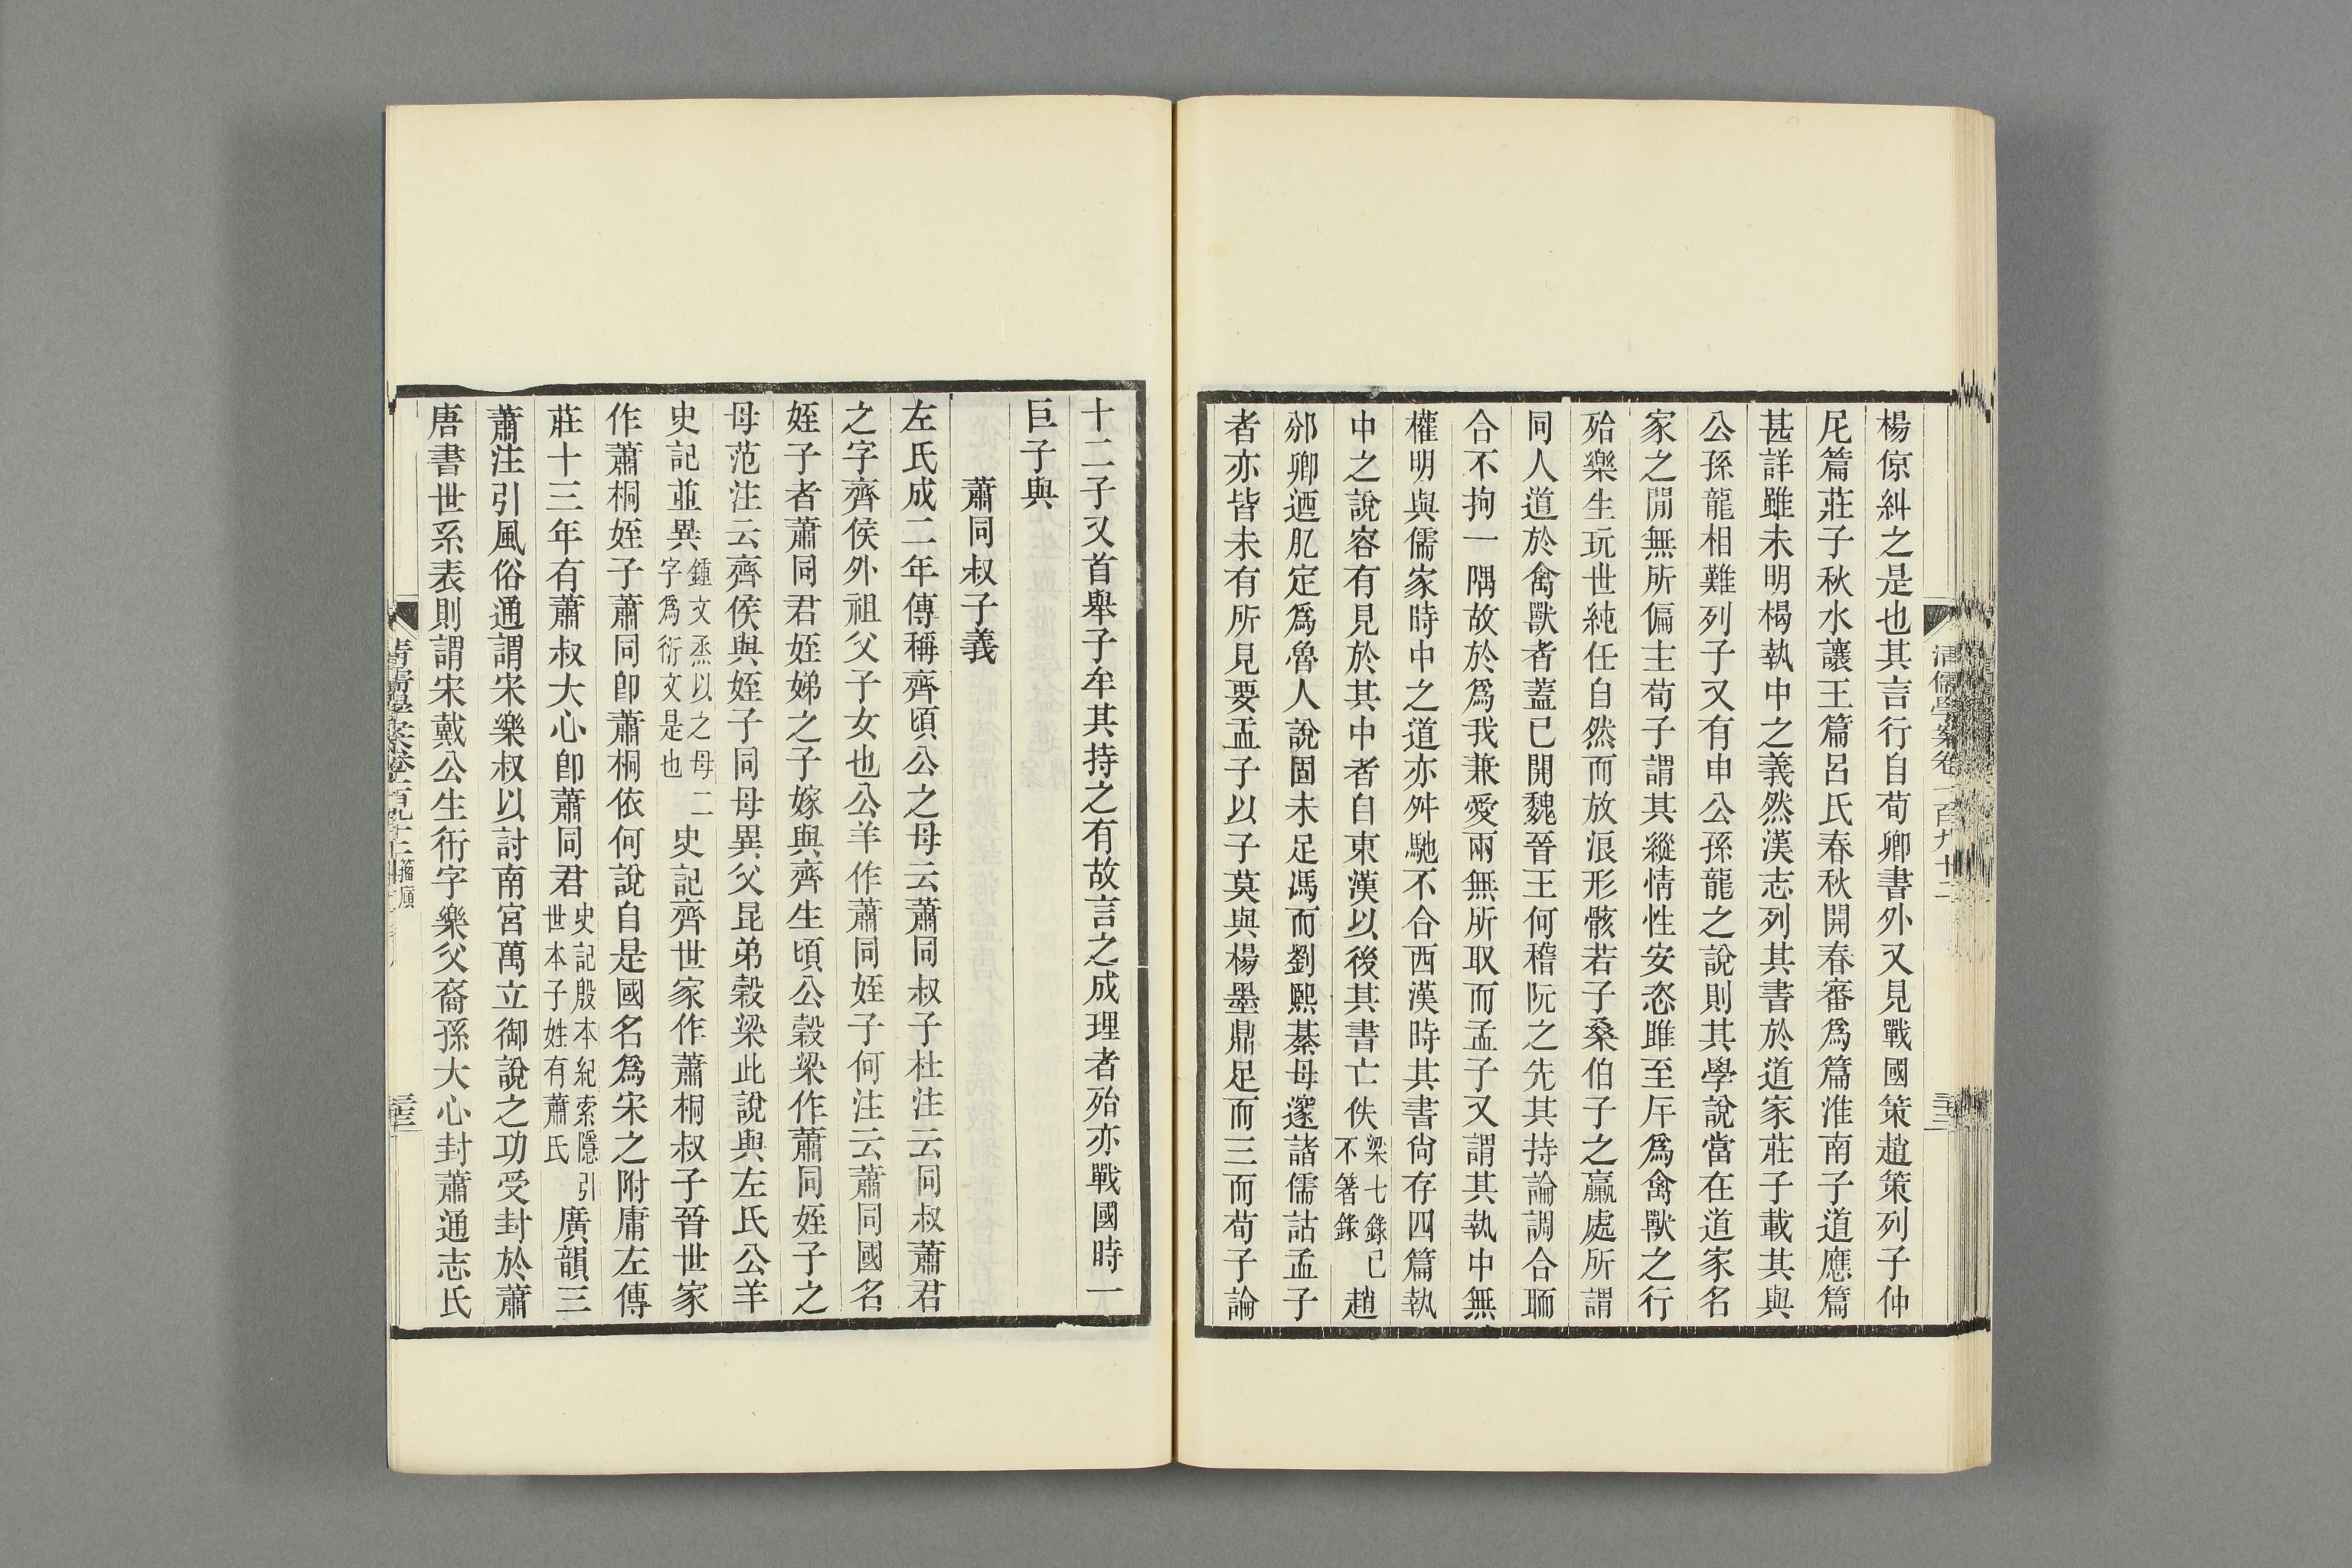 楊倞糾之是也其言行自荀卿書外又見戰國策趙策列子仲
尼篇莊子秋水讓王篇呂氏春秋開春審爲篇淮南子道應篇
甚詳雖未明楬執中之義然漢志列其書於道家莊子載其與
公孫龍相難列子又有申公孫龍之說則其學說當在道家名
家之閒無所偏主荀子謂其縱情性安恣睢至厈爲禽獸之行
殆樂生玩世純任自然而放浪形骸若子桑伯子之臝處所謂
同人道於禽獸者蓋已開魏晉王何稽阮之先其持論調合聏
合不拘一隅故於爲我兼愛兩無所取而孟子又謂其執中無
權明與儒家時中之道亦舛馳不合西漢時其書尙存四篇執
中之說容有見於其中者自東漢以後其書亡佚梁七錄已不箸錄趙
邠卿迺肊定爲魯人說固未足馮而劉熙綦毋邃諸儒詁孟子
者亦皆未有所見要孟子以子莫與楊墨鼎足而三而荀子論
清儒學案卷一百九十二
十二子又首舉子牟其持之有故言之成理者殆亦戰國時一
巨子與
蕭同叔子義
左氏成二年傳稱齊頃公之母云蕭同叔子杜注云同叔蕭君
之字齊侯外祖父子女也公羊作蕭同姪子何注云蕭同國名
姪子者蕭同君姪娣之子嫁與齊生頃公穀梁作蕭同姪子之
母范注云齊侯與姪子同母異父昆弟穀梁此說與左氏公羊
史記並異鍾文烝以之母二字爲衍文是也史記齊世家作蕭桐叔子晉世家
作蕭桐姪子蕭同卽蕭桐依何說自是國名爲宋之附庸左傳
莊十三年有蕭叔大心卽蕭同君史記殷本紀索隱引世本子姓有蕭氏廣韻三
蕭注引風俗通謂宋樂叔以討南宮萬立御說之功受封於蕭
唐書世系表則謂宋戴公生衎字樂父裔孫大心封蕭通志氏
清儒學案卷一百九十二籀廎